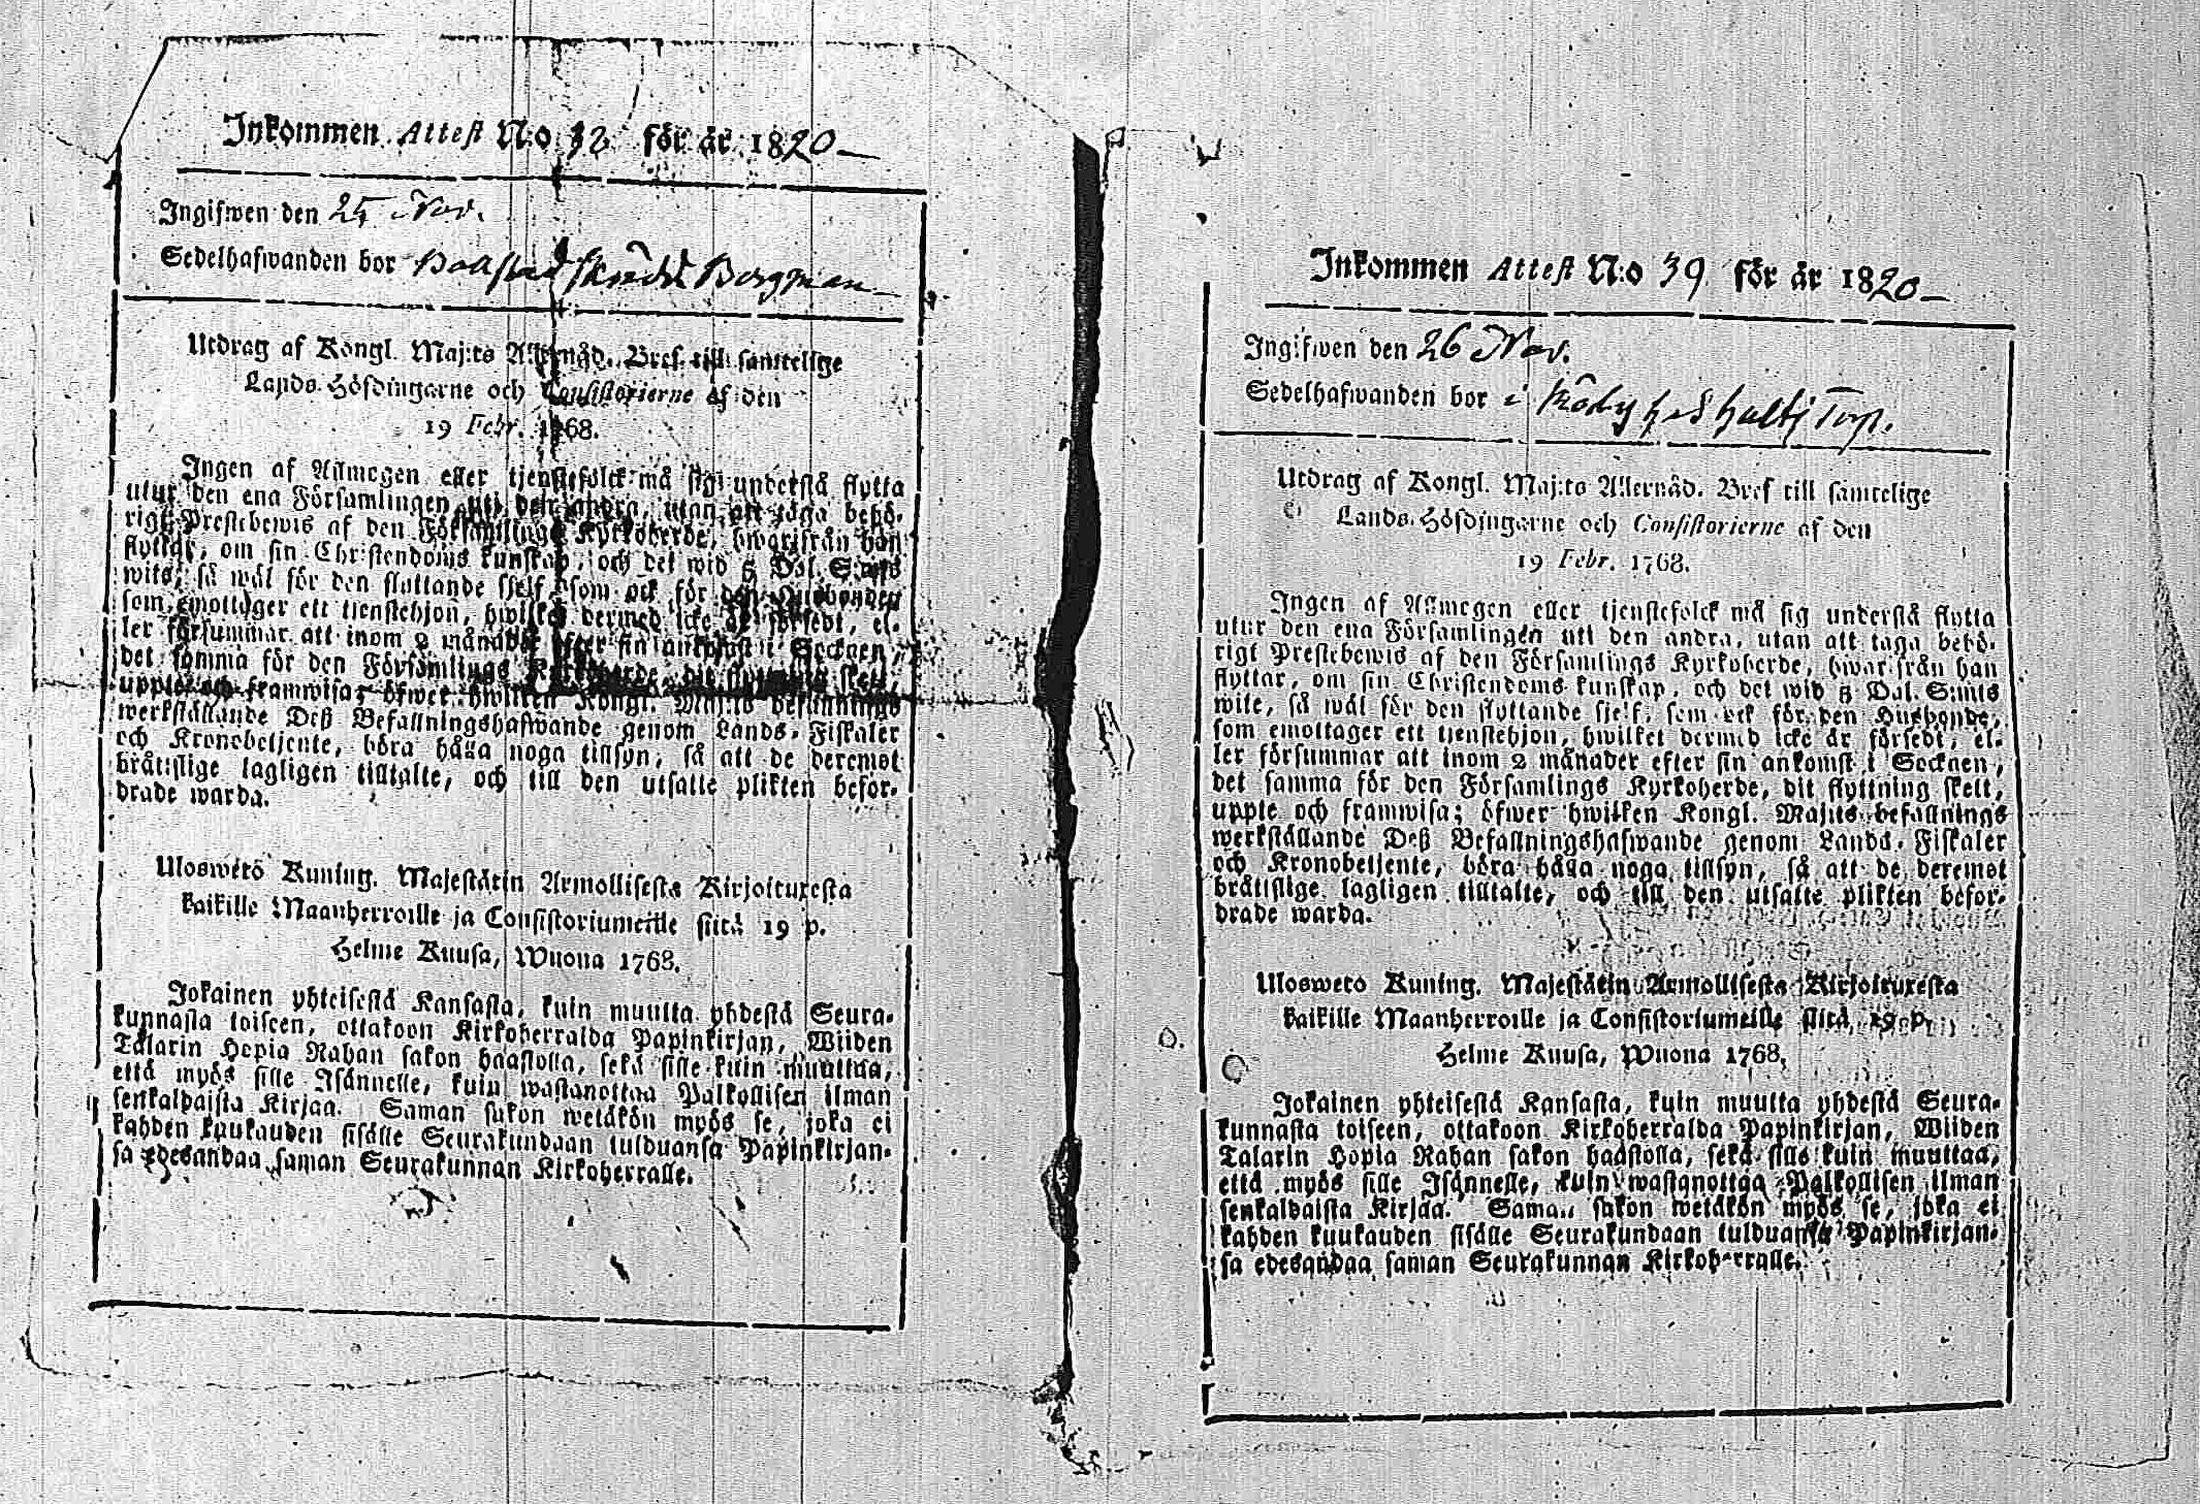 Inkommen Attest N:o 38 för år 1820
Ingifwen den 25 Nov.
Sedelhafwanden bor Bergman
Utdrag af Kongl. Maj:ts Allernåd. Bref till samtelige
Lands-Höfdingarne och Consistorierne af den
19 Febr. 1768.
Ingen af Allmogen eller tjenstefolck må sig understå flytta
utur den ena Församlingen uti den andra, utan att taga behö-
rigt Prestebewis af den Församlings Kyrkoherde, hwarifrån han
flyttar, om sin Christendoms kunskap, och det wid 5 Dal. S:mts
wite, så wäl för den flyttande sjelf, som ock för den Husbonden
som emottager ett tjenstehjon, hwilket dermed icke är försedt, el-
ler försummar att inom 2 månader efter sin ankomst i Socknen,
det samma för den Församlings Kyrkoherde, dit flyttning skett,
uppte och framwisa; öfwer hwilken Kongl. Maj:ts befallnings
werkställande Deß Befallningshafwande genom Lands-Fiskaler
och Kronobetjente, böra hålla noga tillsyn, så att de deremot
bråttslige lagligen tilltalte, och till den utsatte plikten befor-
drade warda.
Uloswetö Kuning. Majestätin Armollisesta Kirjoituxesta
kaikille Maanherroille ja Consistoriumeille siitä 19 p.
Helme Kuusa, Wuona 1768.
Jokainen yhteisestä Kansasta, kuin muutta yhdestä Seura-
kunnasta toiseen, ottakoon Kirkoherralda Papinkirjan, Wiiden
Talarin Hopia Rahan sakon haastolla, sekä sille kuin muuttaa,
että myös sille Isännelle, kuin wastanottaa Palkollisen ilman
senkaldaista Kirjaa. Saman sakon wetäkön myös se, joka ei
kahden kuukauden sisälle Seurakundaan tulduansa Papinkirjan-
sa edesandaa saman Seurakunnan Kirkoherralle.
Inkommen Attest N:o 39 för år 1820
Ingifwen den 26 Nov.
Sedelhafwanden bor i Torp.
Utdrag af Kongl. Maj:ts Allernåd. Bref till samtelige
Lands-Höfdingarne och Consistorierne af den
19 Febr. 1768.
Ingen af Allmogen eller tjenstefolck må sig understå flytta
utur den ena Församlingen uti den andra, utan att taga behö-
rigt Prestebewis af den Församlings Kyrkoherde, hwarifrån han
flyttar, om sin Christendoms kunskap, och det wid 5 Dal. S:mts
wite, så wäl för den flyttande sjelf, som ock för den Husbonde,
som emottager ett tjenstehjon, hwilket dermed icke är försedt, el-
ler försummar att inom 2 månader efter sin ankomst i Socknen,
det samma för den Församlings Kyrkoherde, dit flyttning skett,
uppte och framwisa; öfwer hwilken Kongl. Maj:ts befallnings
werkställande Deß Befallningshafwande genom Lands-Fiskaler
och Kronobetjente, böra hålla noga tillsyn, så att de deremot
bråttslige lagligen tilltalte, och till den utsatte plikten befor-
drade warda.
Uloswetö Kuning. Majestätin Armollisesta Kirjoituxesta
kaikille Maanherroille ja Consistoriumeille siitä 19 p.
Helme Kuusa, Wuona 1768.
Jokainen yhteisestä Kansasta, kuin muutta yhdestä Seura-
kunnasta toiseen, ottakoon Kirkoherralda Papinkirjan, Wiiden
Talarin Hopia Rahan sakon haastolla, sekä sille kuin muuttaa,
että myös sille Isännelle, kuin wastanottaa Palkollisen ilman
senkaldaista Kirjaa. Saman sakon wetäkön myös se, joka ei
kahden kuukauden sisälle Seurakundaan tulduansa Papinkirjan-
sa edesandaa saman Seurakunnan Kirkoherralle.